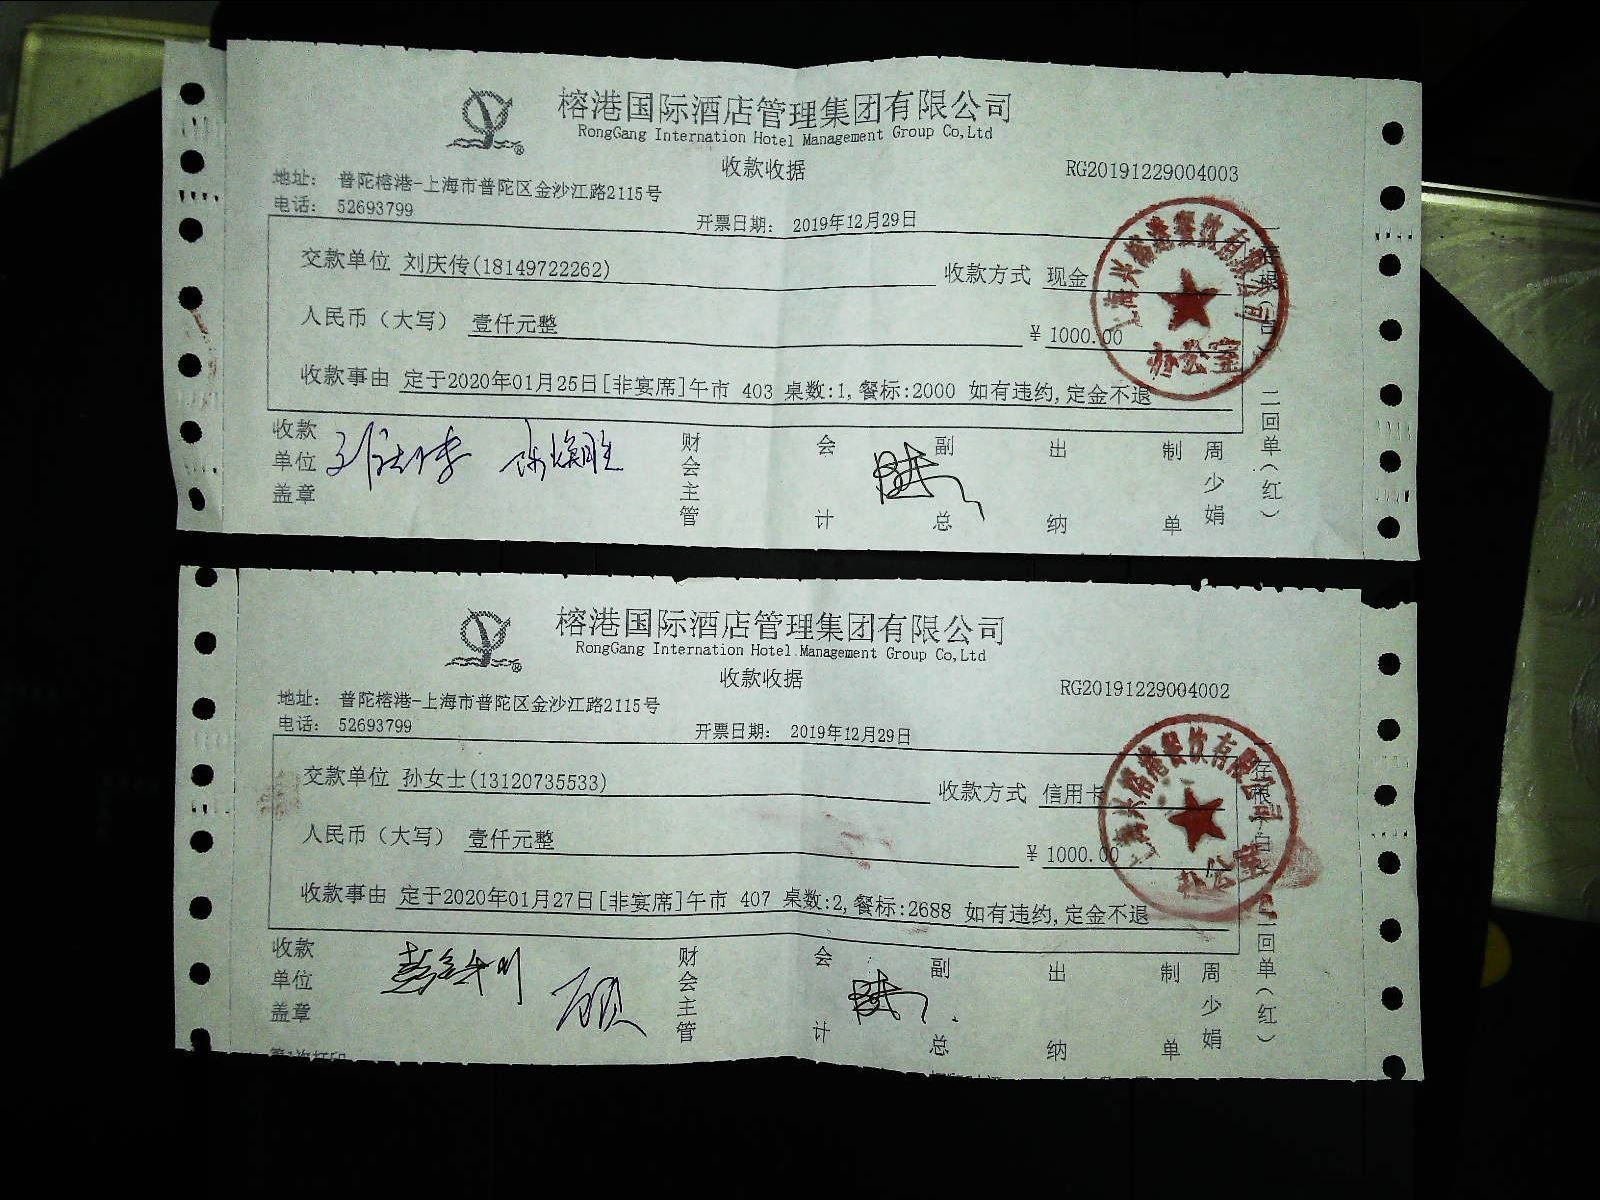 榕港国际酒店管理集团有限公司
RongGang Internation Hotel Management Group Co,Ltd
收款收据
RG20191229004003
地址： 普陀榕港-上海市普陀区金沙江路2115号
电话： 52693799
开票日期： 2019年12月29日
交款单位 刘庆传(18149722262) 收款方式 现金
人民币（大写） 壹仟元整 ￥ 1000.00
收款事由 定于2020年01月25日[非宴席]午市 403 桌数:1,餐标:2000 如有违约,定金不退
上海兴榕港餐饮有限公司
办公室
二回单(红)
收款单位盖章 财会主管 会计 副总 出纳 制单 周少娟
榕港国际酒店管理集团有限公司
RongGang Internation Hotel Management Group Co,Ltd
收款收据
RG20191229004002
地址： 普陀榕港-上海市普陀区金沙江路2115号
电话： 52693799
开票日期： 2019年12月29日
交款单位 孙女士(13120735533) 收款方式 信用卡
人民币（大写） 壹仟元整 ￥ 1000.00
收款事由 定于2020年01月27日[非宴席]午市 407 桌数:2,餐标:2688 如有违约,定金不退
上海兴榕港餐饮有限公司
办公室
二回单(红)
收款单位盖章 财会主管 会计 副总 出纳 制单 周少娟